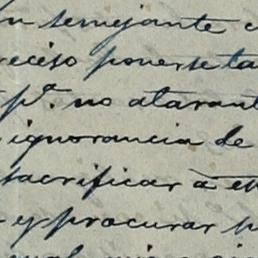 n semejante c
reciso ponerse ta
pª. no atarant
ignorancia de
sacrificar à e
y procurar p